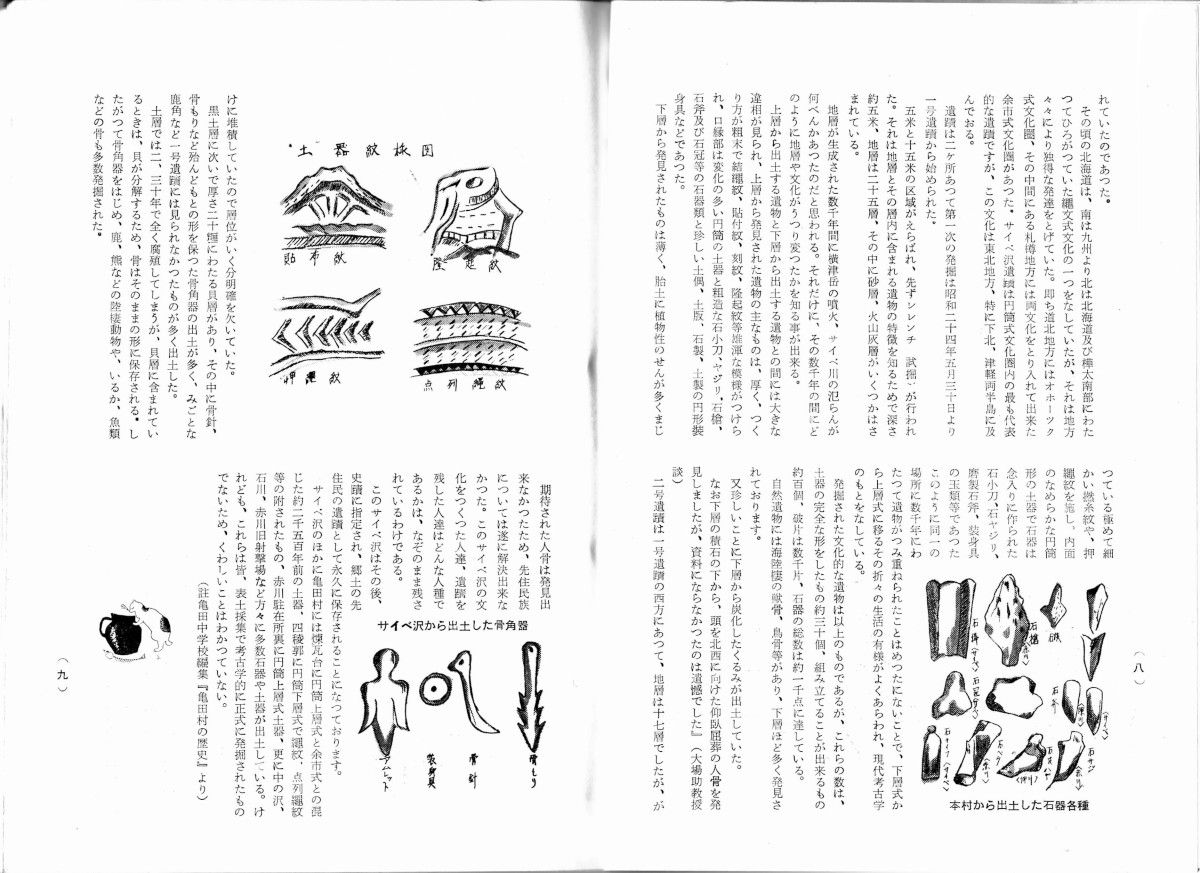 れていたのであつた。
その頃の北海道は、南は九州より北は北海道及び樺太南部にわた
つてひろがつていた縄文式文化の一つをなしていたが、それは地方
々々により独得な発達をとげていた。即ち道北地方にはオホーツク
式文化圏、その中間にある札樽地方には両文化をとり入れて出来た
余市式文化圏があつた。サイベ沢遺蹟は円筒式文化圏内の最も代表
的な遺蹟ですが、この文化は東北地方、特に下北、津軽両半島に及
んでおる。
遺蹟は二ケ所あつて第一次の発掘は昭和二十四年五月三十日より
一号遺蹟から始められた。
五米と十五米の区域がえらばれ、先ずシレンチ（試掘）が行われ
た。それは地層とその層内に含まれる遺物の特徴を知るためで深さ
約五米、地層は二十五層、その中に砂層、火山灰層がいくつかはさ
まれている。
地層が生成された数千年間に横津岳の噴火、サイベ川の氾らんが
何べんかあつたのだと思われる。それだけに、その数千年の間にど
のように地層や文化がうつり変つたかを知る事が出来る。
上層から出土する遺物と下層から出土する遺物との間には大きな
違相が見られ、上層から発見された遺物の主なものは、厚く、つく
り方が粗末で結縄紋、貼付紋、刻紋、隆起紋等雄渾な模様がつけら
れ、口縁部は変化の多い円筒の土器と粗造な石小刀、ヤジリ、石槍、
石斧及び石冠等の石器類と珍しい土偶、土版、石製、土製の円形装
身具などであつた。
下層から発見されたものは薄く、胎土に植物性のせんが多くまじ
つている極めて細
かい撚糸紋や、押
縄紋を施し、内面
のなめらかな円筒
形の土器で石器は
念入りに作られた
石小刀、石ヤジリ、
磨製石斧、装身具
の玉類等であつた
このように同一の
場所に数千年にわ
たつて遺物がつみ重ねられたことはめつたにないことで、下層式か
ら上層式に移るその折々の生活の有様がよくあらわれ、現代考古学
のもとをなしている。
発掘された文化的な遺物は以上のものであるが、これらの数は、
土器の完全な形をしたもの約三十個、組み立てることが出来るもの
約百個、破片は数千片、石器の総数は約一千点に達している。
自然遺物には海陸棲の獣骨、鳥骨等があり、下層ほど多く発見さ
れております。
又珍しいことに下層から炭化したくるみが出土していた。
なお下層の積石の下から、頭を北西に向けた仰臥屈葬の人骨を発
見しましたが、資料にならなかつたのは遺憾でした』（大場助教授
談）
二号遺蹟は一号遺蹟の西方にあつて、地層は十七層でしたが、が
石槍
石斧
本村から出土した石器各種
（八）
けに堆積していたので層位がいく分明確を欠いていた。
黒土層に次いで厚さ二十糎にわたる貝層があり、その中に骨針、
骨もりなど殆んどもとの形を保つた骨角器の出土が多く、みごとな
鹿角など一号遺蹟には見られなかつたものが多く出土した。
土層では二、三十年で全く腐殖してしまうが、貝層に含まれてい
るときは、貝が分解するため、骨はそのままの形に保存される。し
たがつて骨角器をはじめ、鹿、熊などの陸棲動物や、いるか、魚類
などの骨も多数発掘された。
土器紋様図
貼布紋
隆起紋
押縄紋
点列縄紋
期待された人骨は発見出
来なかつたため、先住民族
については遂に解決出来な
かつた。このサイベ沢の文
化をつくつた人達、遺蹟を
残した人達はどんな人種で
あるかは、なぞのまま残さ
れているわけである。
このサイベ沢はその後、
史蹟に指定され、郷土の先
住民の遺蹟として永久に保存されることになつております。
サイベ沢のほかに亀田村には煉瓦台に円筒上層式と余市式との混
じた約二千五百年前の土器、四稜郭に円筒下層式で縄紋、点列縄紋
等の附されたもの、赤川駐在所裏に円筒上層式土器、更に中の沢、
石川、赤川旧射撃場など方々に多数石器や土器が出土している。け
れども、これらは皆、表土採集で考古学的に正式に発掘されたもの
でないため、くわしいことはわかつていない。
（註亀田中学校編集『亀田村の歴史』より）
サイベ沢から出土した骨角器
骨もり
骨針
装身具
アムレット
（九）